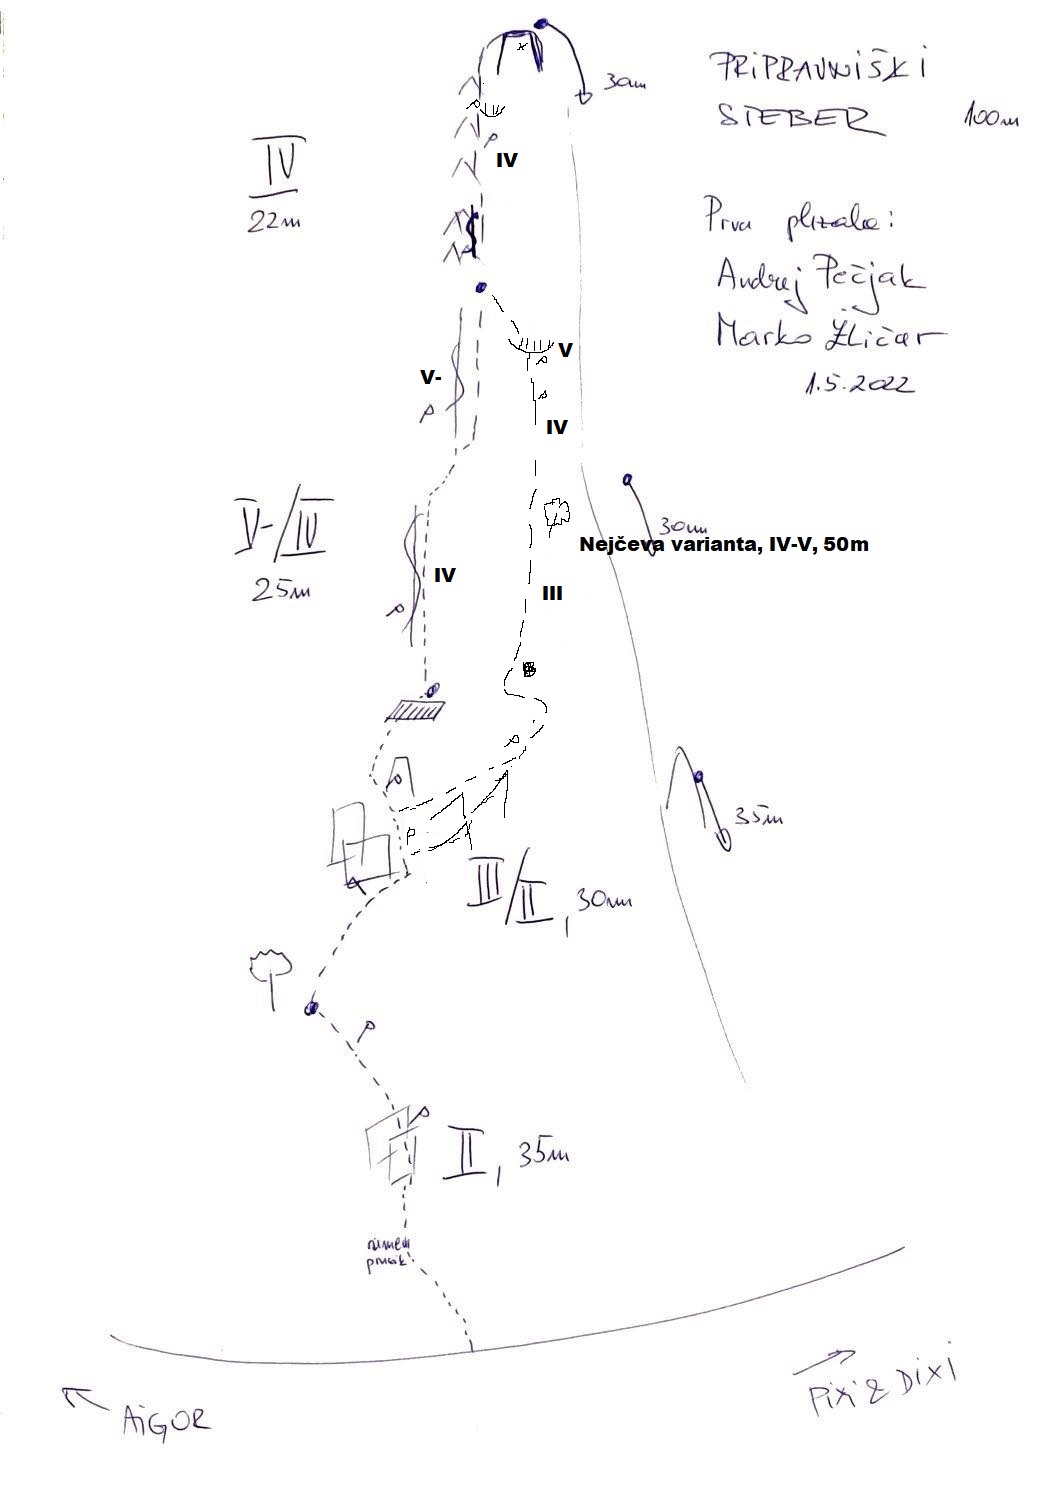 PRIPRAVNIŠKI
STEBER 100m
30m
IV
22m
IV
Prva plezalca:
Andrej Pečjak
Marko Žličar
1.5.2022
V
V-
IV
V-/IV
25m
30m
Nejčeva varianta, IV-V, 50m
IV
III
35m
III/II, 30m
II, 35m
prusik
AIGOR
PIXI & DIXI